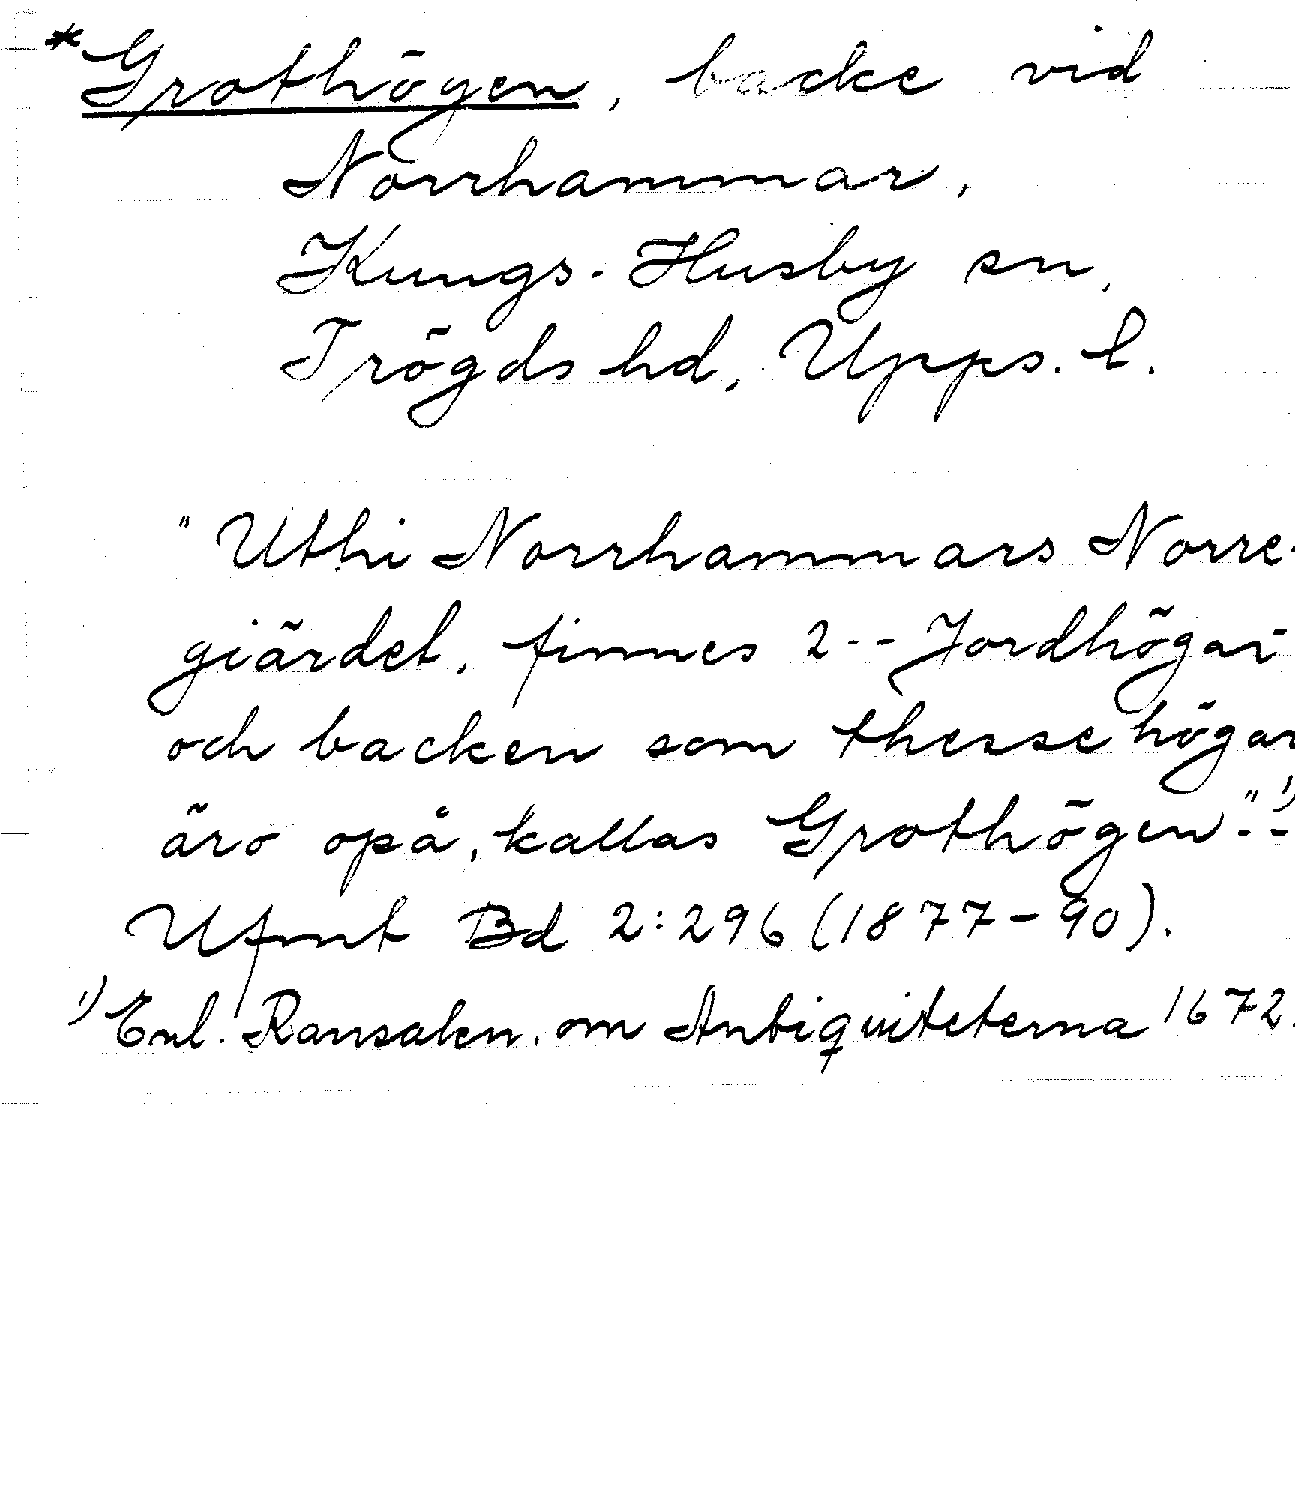 *Grothögen, backe vid
Norrhammar,
Kungs-Husby sn,
Trögds hd, Upps. l.
"Uthi Norrhammars Norre-
giärdet, finnes 2 -- Jordhögar -
och backen som thesse högar
äro opå, kallas Grothögen" -- 1)
Ufmt Bd 2:296 (1877-90).
1) Enl. Ransaken. om Antiquiteterna 1672.